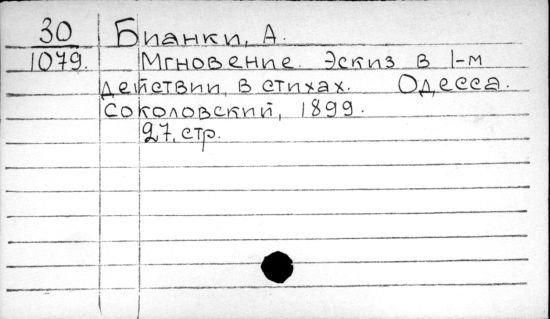 30 Бианки, А.
1079. Мгновение. Эскиз в 1-м
действии, в стихах. Одесса.
Соколовский, 1899.
27. стр.